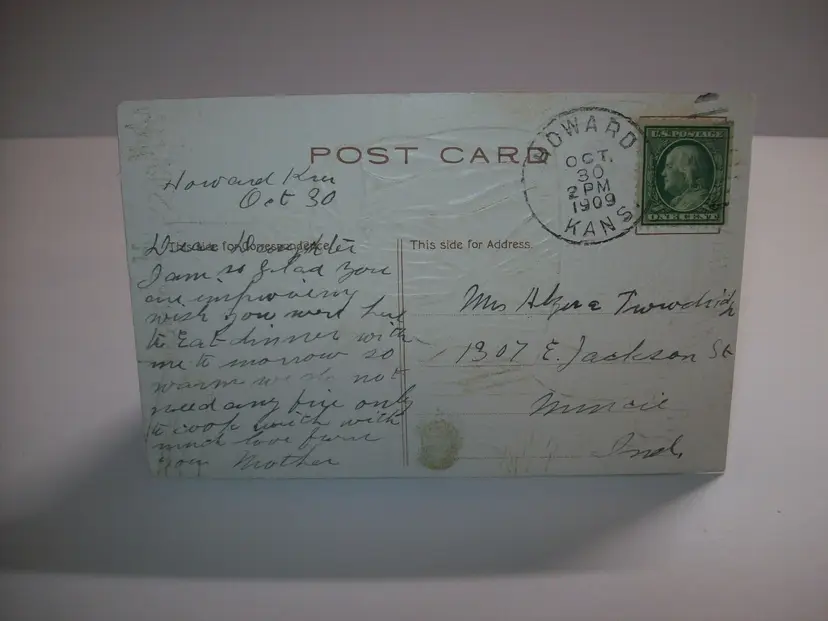 POST CARD
HOWARD
OCT.
30
2 PM
1909
KANS
U.S. POSTAGE
ONE CENT
Howard Kan
Oct 30
This side for Correspondence
This side for Address.
Dear Daughter
I am so glad you
are improving
wish you were here
to Eat dinner with
me to morrow so
warm we do not
need any fire only
to cook with with
much love from
your Mother
Mrs
1307 E. Jackson St
Muncie
Ind.